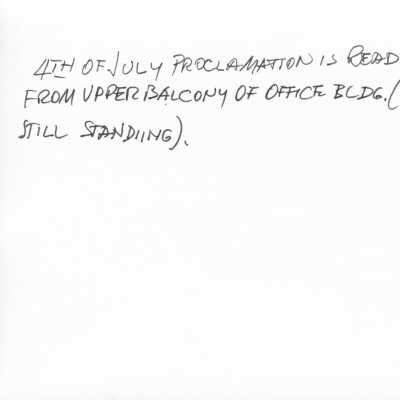 4TH OF JULY PROCLAMATION IS READ
FROM UPPER BALCONY OF OFFICE BLDG. (
STILL STANDIING).